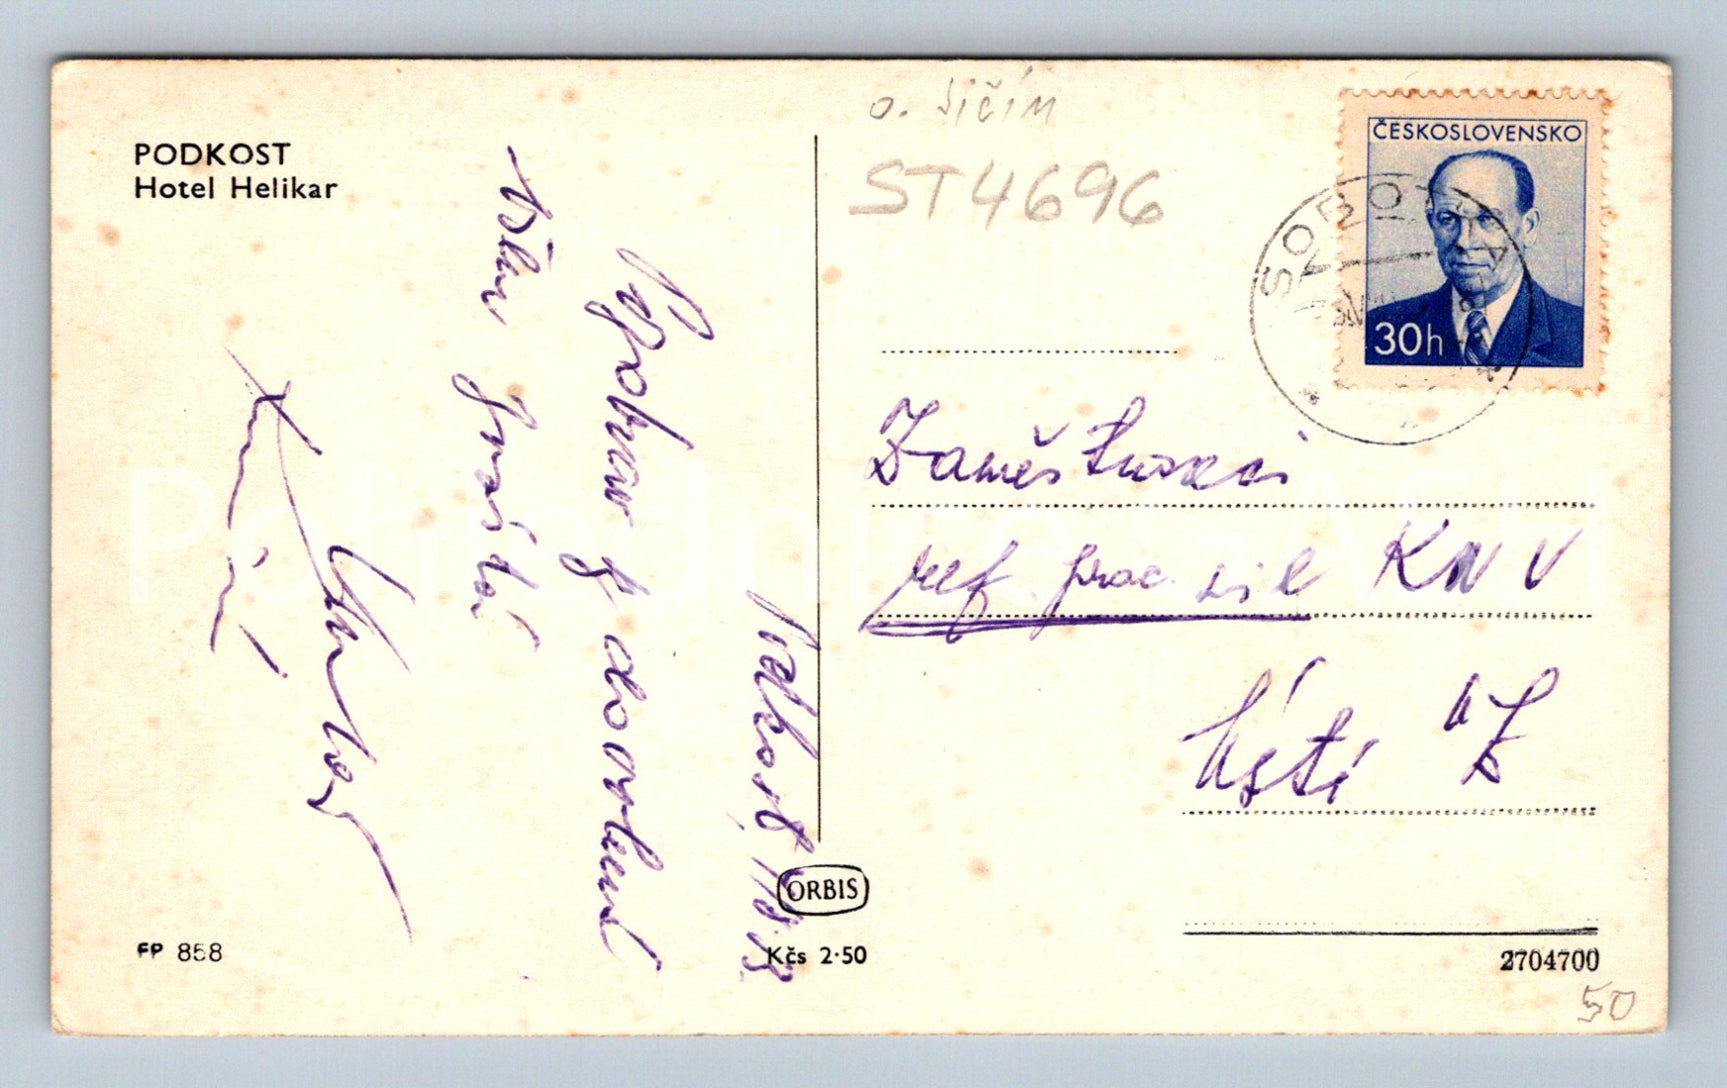 PODKOST
Hotel Helikar
o. Jičín
ST4696
ČESKOSLOVENSKO
30h
SOBOTKA
Podkost
Pozdrav z dovolené
Všem
Zaměstnanci
ref. prac. sil KNV
Ústí
ORBIS
FP 858
Kčs 2·50
2704700
50